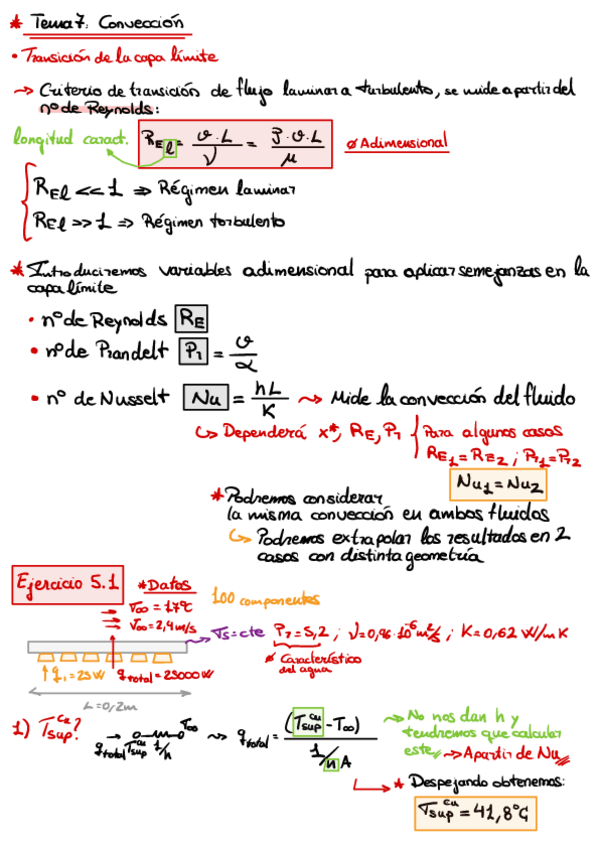 * Tema 7: Convección
• Transición de la capa límite
→ Criterio de transición de flujo laminar a turbulento, se mide a partir del
nº de Reynolds:
longitud caract. R_E l = v·L / ν = ρ·v·L / μ ∅ Adimensional
R_El << 1 ⇒ Régimen laminar
R_El >> 1 ⇒ Régimen torbulento
* Introduciremos variables adimensional para aplicar semejanzas en la
capa límite
• nº de Reynolds R_E
• nº de Prandelt Pr = υ / α
• nº de Nusselt Nu = hL / K → Mide la convección del fluido
↪ Dependerá x*, R_E, Pr { Para algunos casos
R_E1 = R_E2 ; Pr1 = Pr2
Nu1 = Nu2
* Podremos considerar
la misma convección en ambos fluidos
↪ Podremos extrapolar los resultados en 2
casos con distinta geometría
Ejercicio 5.1 * Datos
T∞ = 17ºC 100 componentes
V∞ = 2,4 m/s
Ts = cte Pr = 5,2 ; ν = 0,96·10^-6 m²/s ; K = 0,62 W/mK
∅ Característico
del agua
q1 = 25W q total = 25000W
L = 0,2m
1) T sup cu? → q total T sup cu 1/h T∞ → q total = (T sup cu - T∞) / (1/hA)
→ No nos dan h y
tendremos que calcular
este → A partir de Nu
→ * Despejando obtenemos:
T sup cu = 41,8ºC